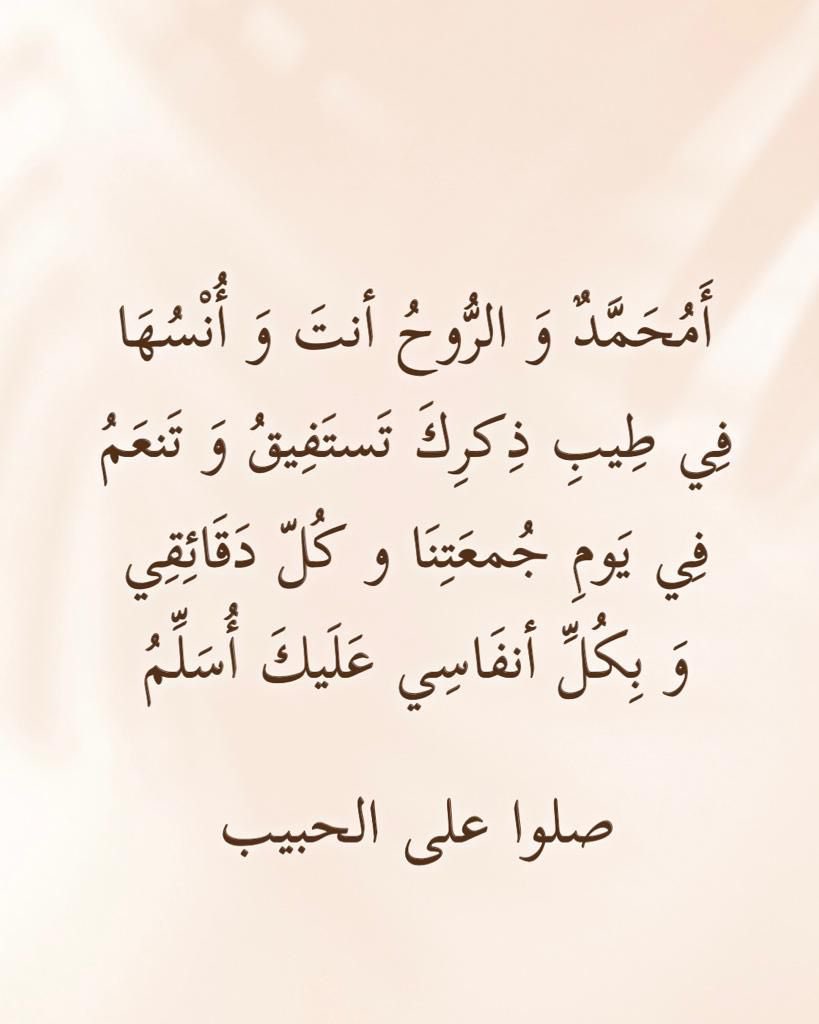 أَمُحَمَّدٌ وَ الرُّوحُ أنتَ وَ أُنْسُهَا
فِي طِيبِ ذِكرِكَ تَستَفِيقُ وَ تَنعَمُ
فِي يَومِ جُمعَتِنَا و كُلّ دَقَائِقِي
وَ بِكُلِّ أنفَاسِي عَلَيكَ أُسَلِّمُ
صلوا على الحبيب